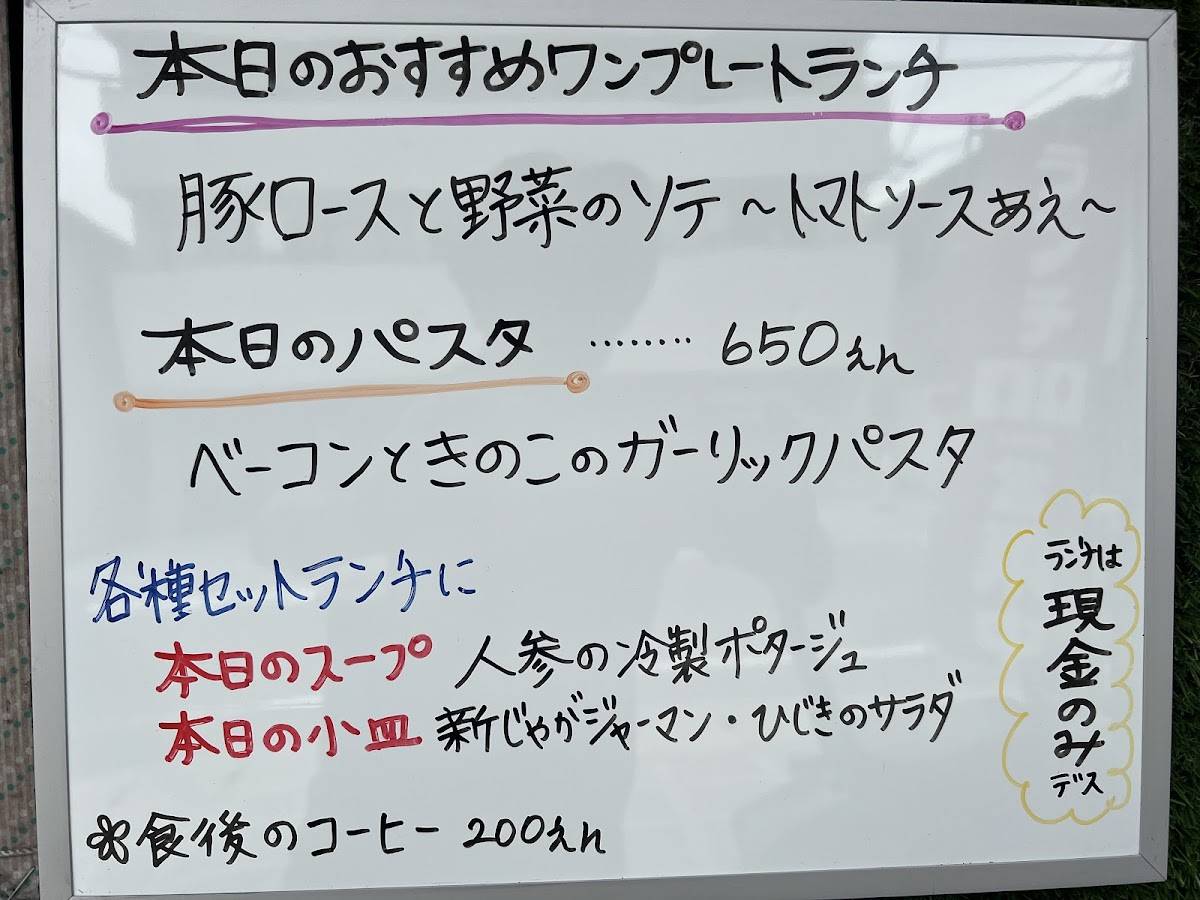 本日のおすすめワンプレートランチ
豚ロースと野菜のソテ ～トマトソースあえ～
本日のパスタ ‥‥‥‥ 650えん
ベーコンときのこのガーリックパスタ
各種セットランチに
本日のスープ 人参の冷製ポタージュ
本日の小皿 新じゃがジャーマン・ひじきのサラダ
食後のコーヒー 200えん
ランチは
現金のみ
デス